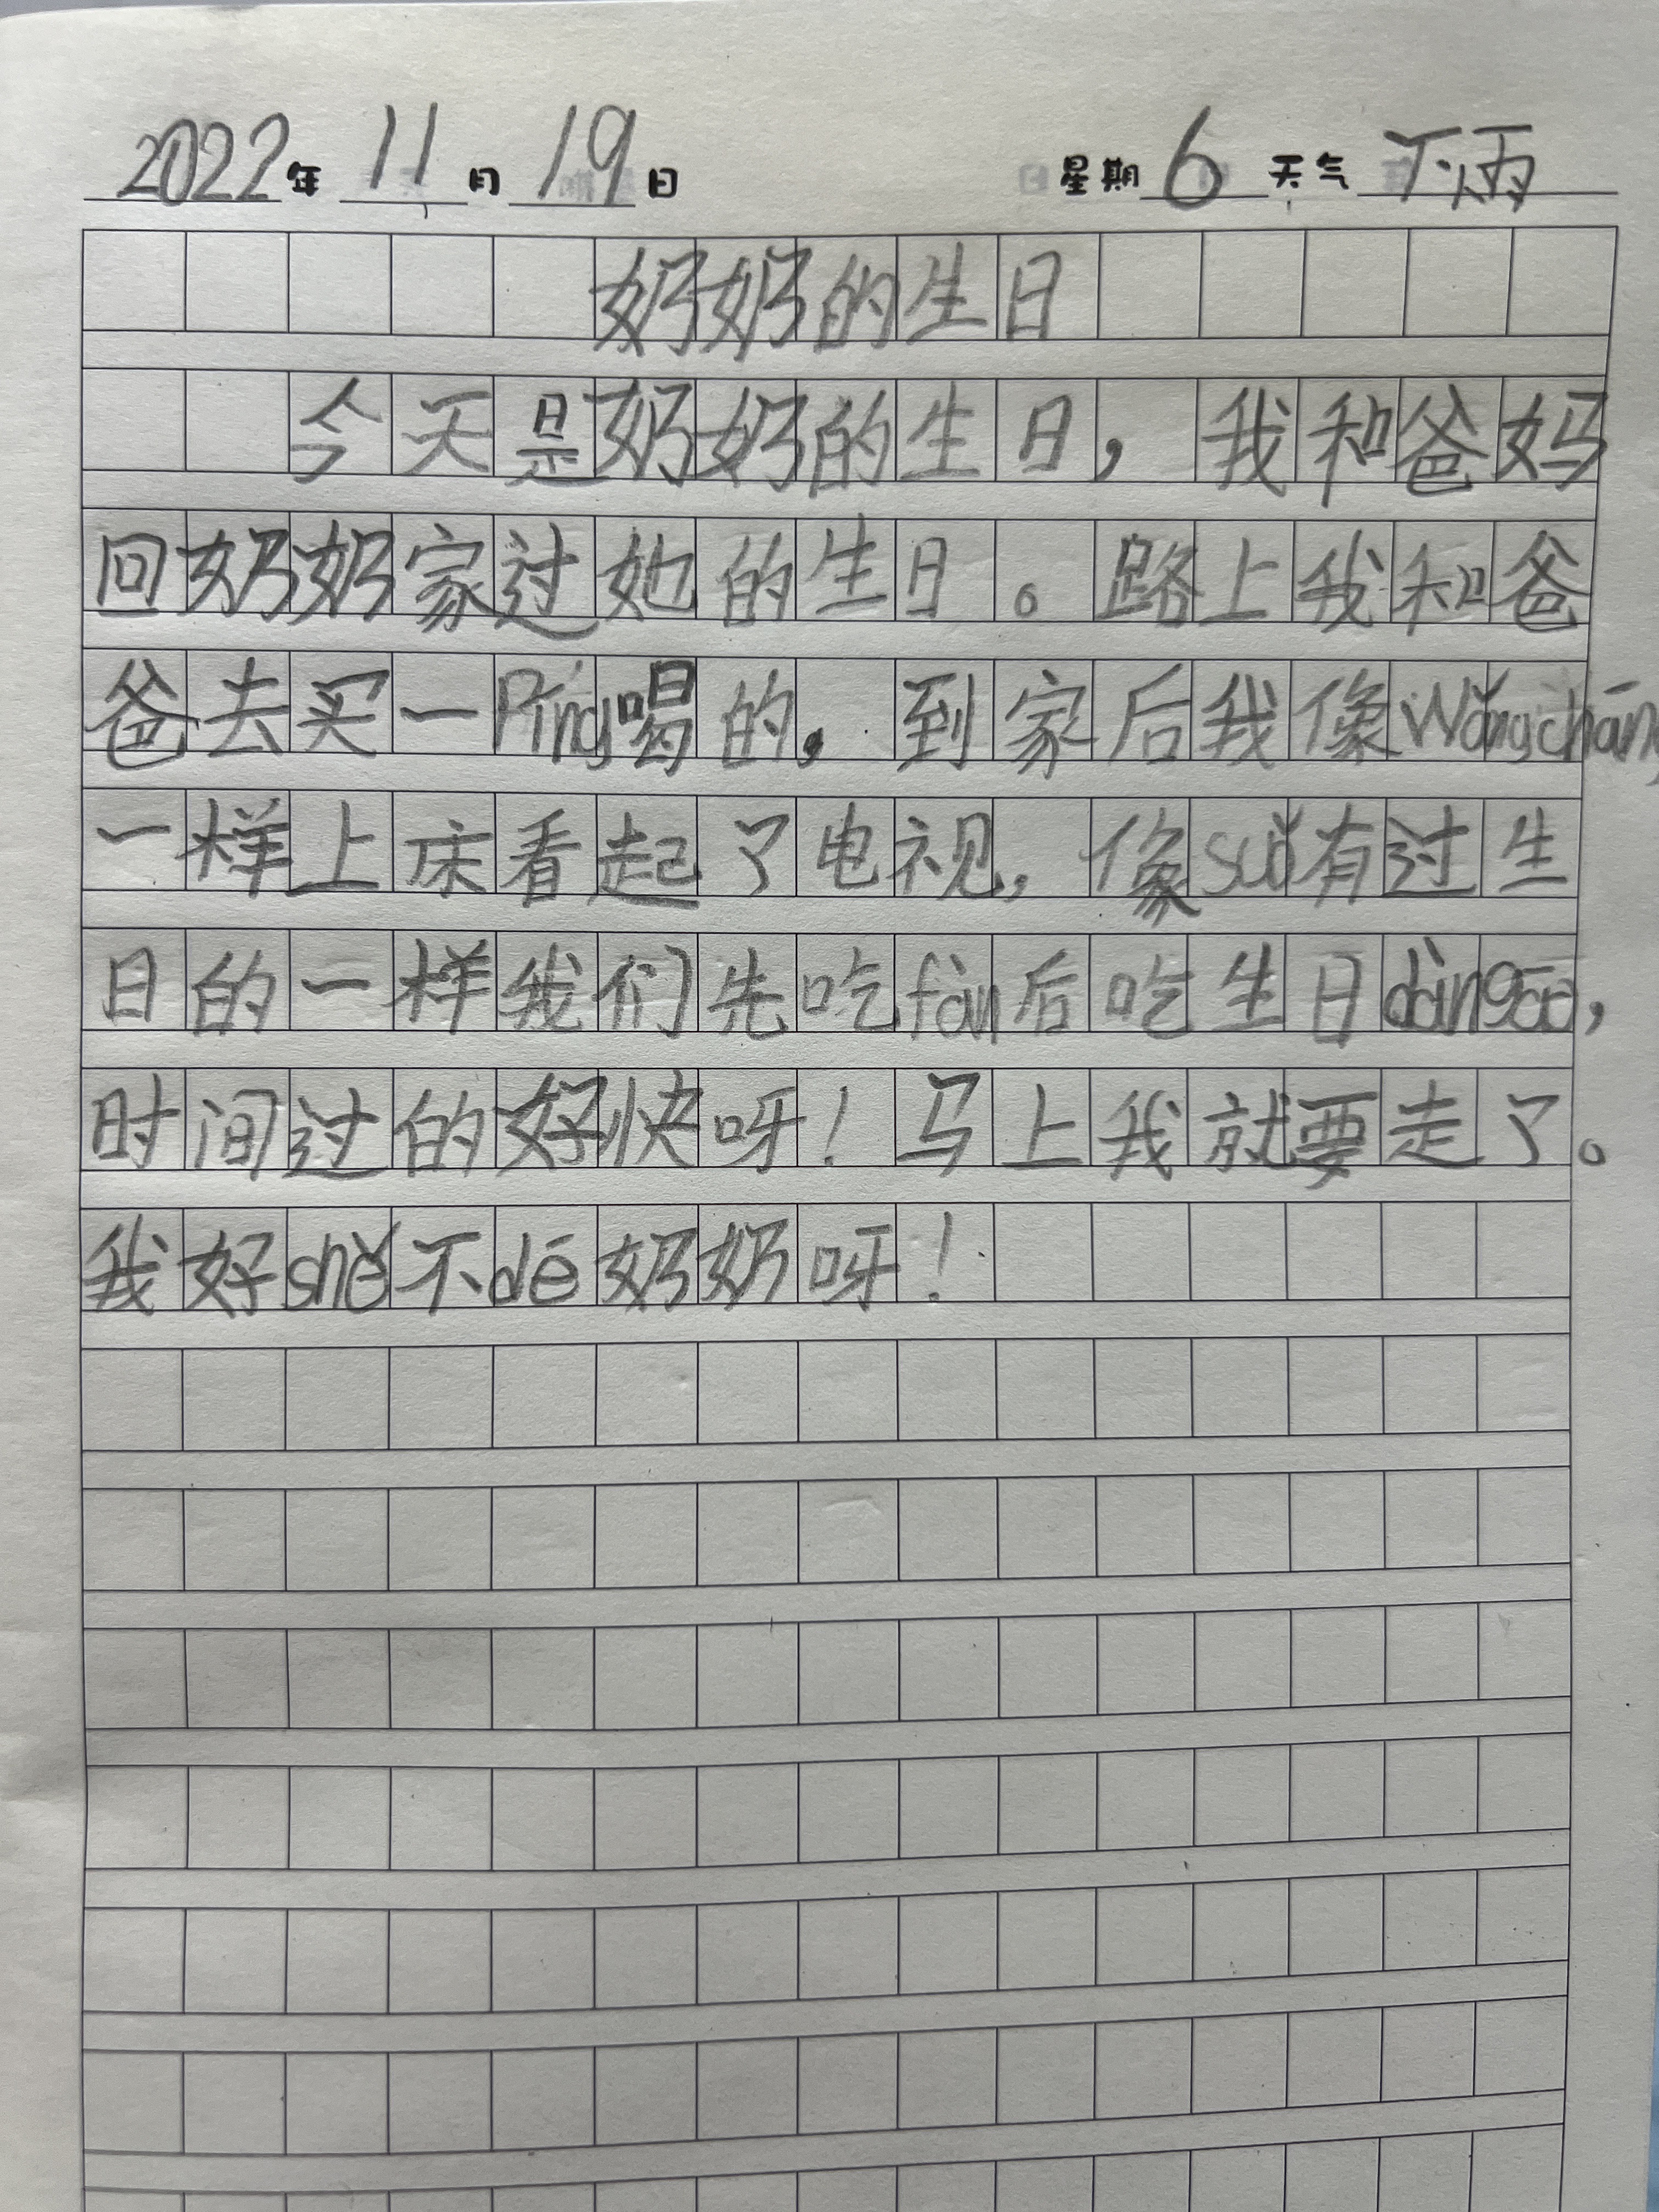 2022年11月19日 星期6天气下雨
奶奶的生日
今天是奶奶的生日，我和爸妈
回奶奶家过她的生日。路上我和爸
爸去买一Píng喝的，到家后我像Wǎngcháng
一样上床看起了电视，像suǒ有过生
日的一样我们先吃fàn后吃生日dàngāo，
时间过的好快呀！马上我就要走了。
我好shě不dé奶奶呀！